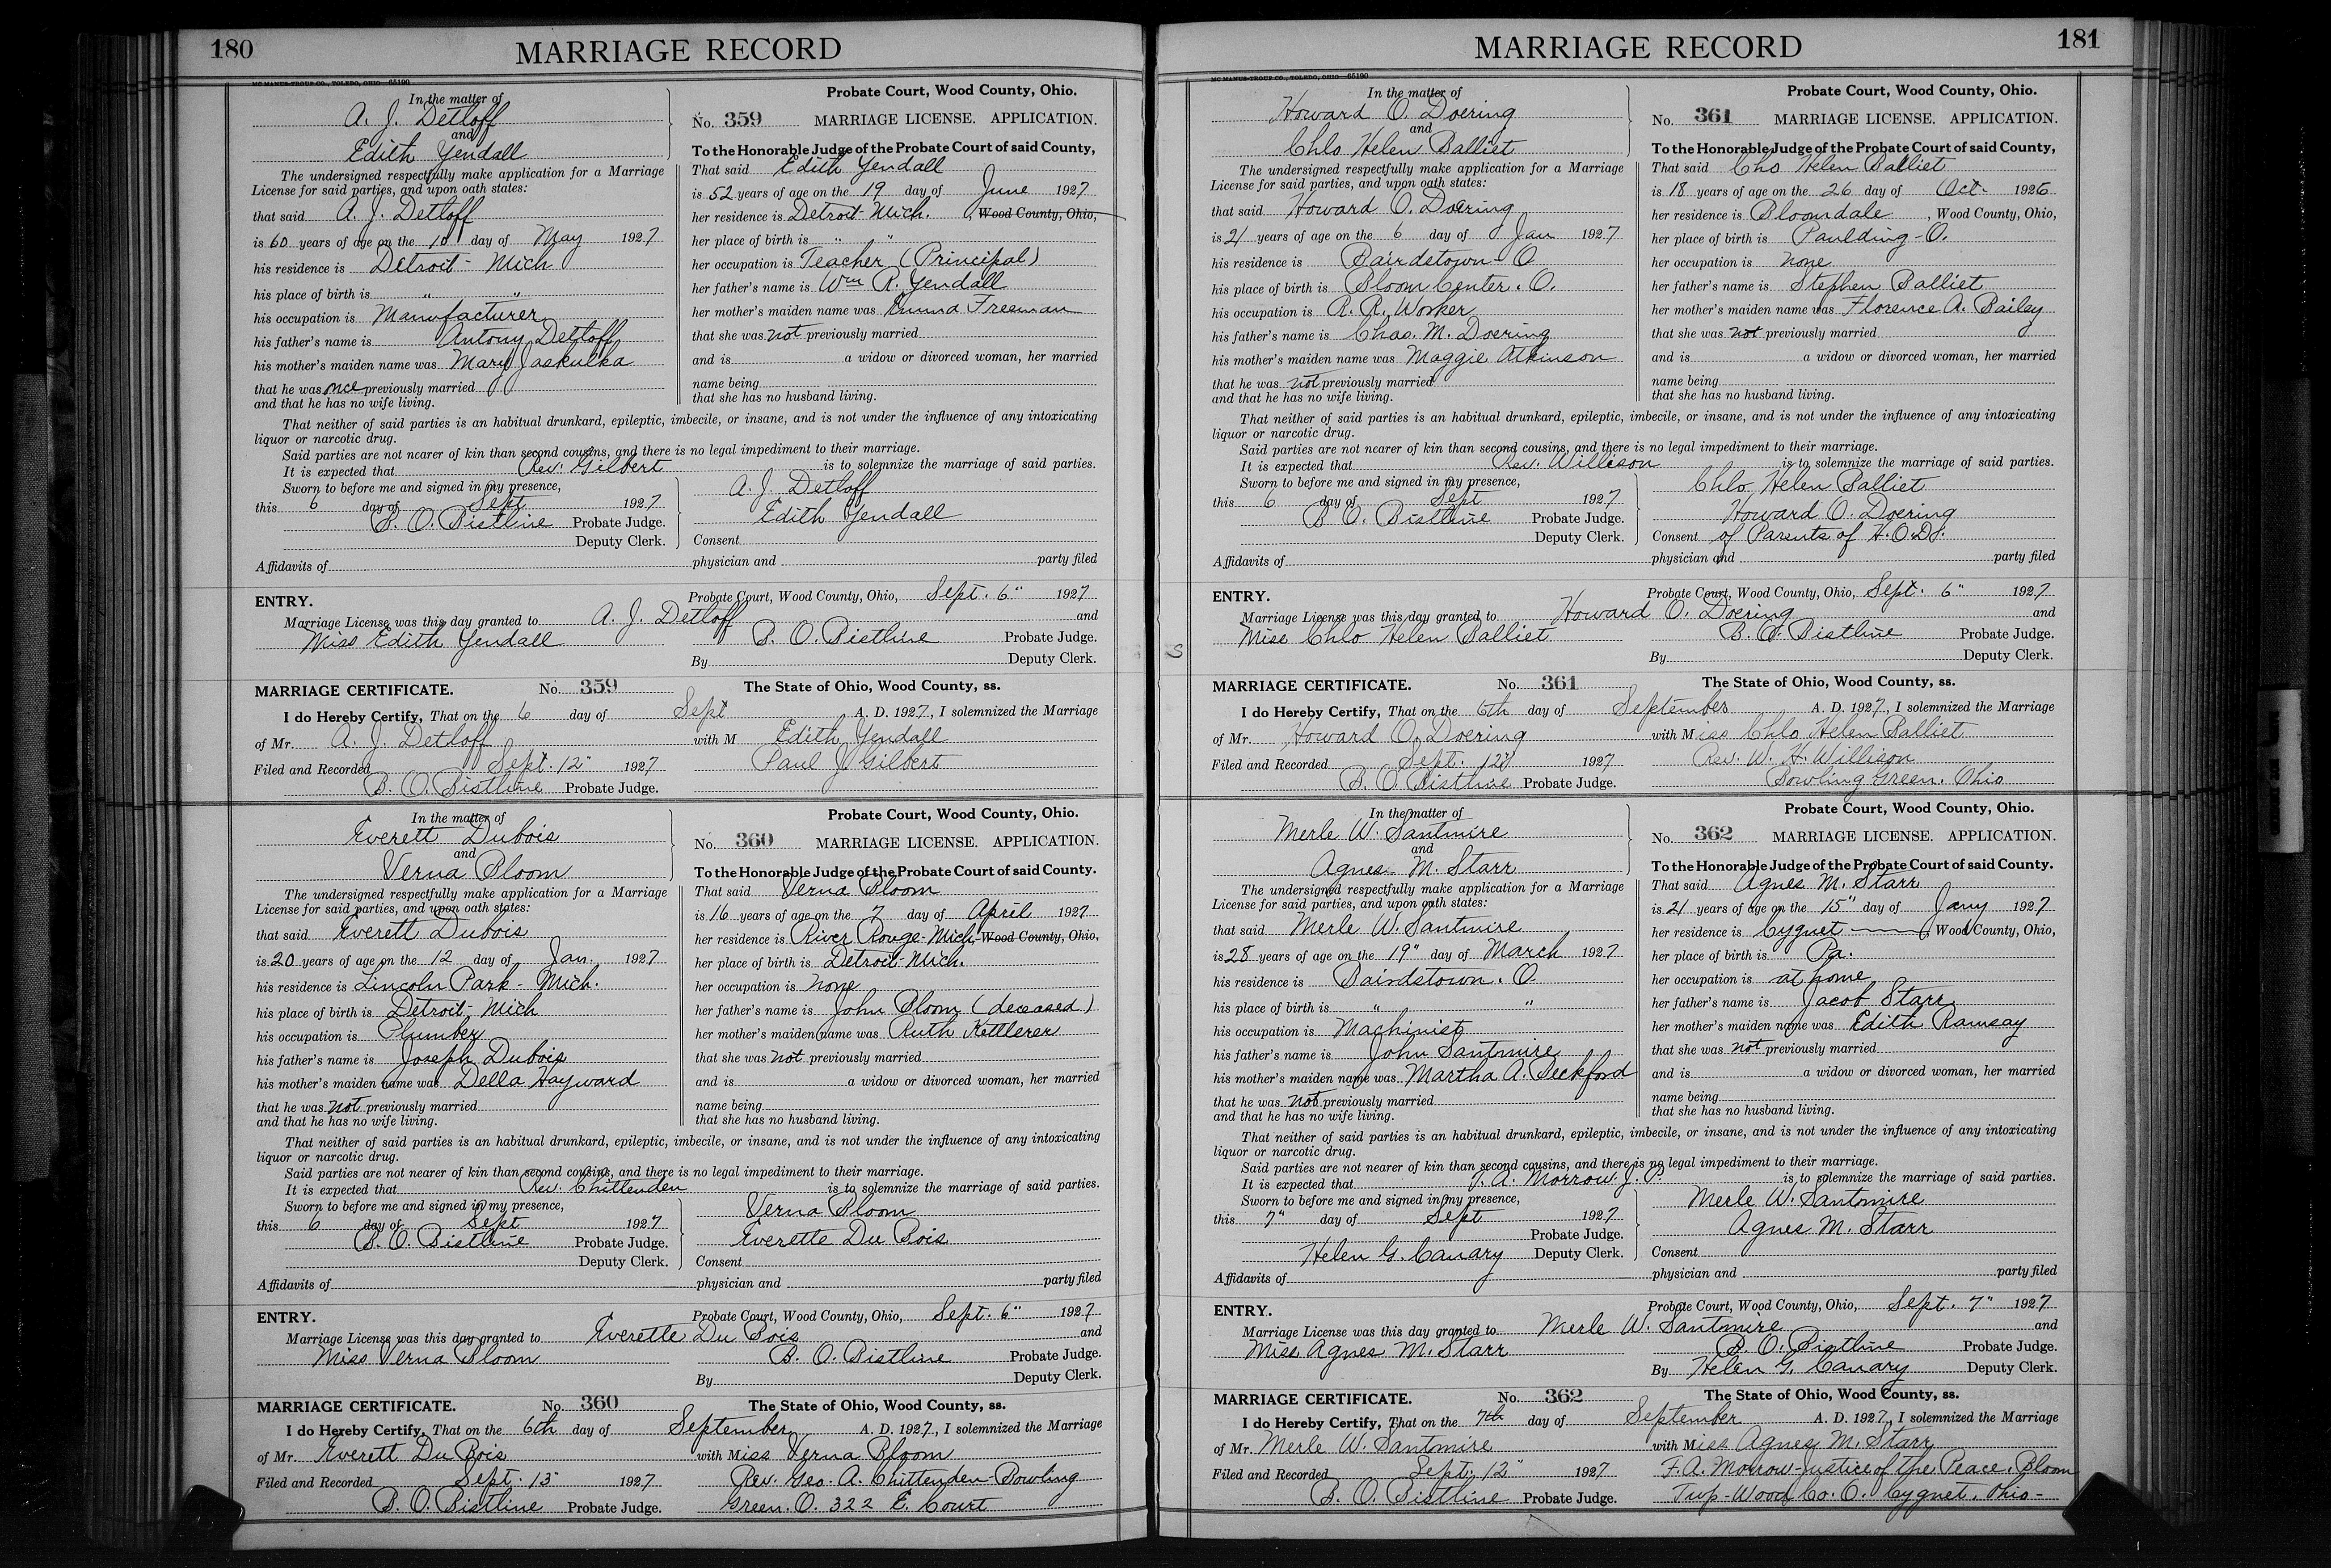 180
MARRIAGE RECORD
MC MANUS-TROUP CO., TOLEDO, OHIO 65190
In the matter of
A. J. Detloff
and
Edith Yendall
The undersigned respectfully make application for a Marriage
License for said parties, and upon oath states:
that said A. J. Detloff
is 60 years of age on the 10 day of May 1927
his residence is Detroit - Mich
his place of birth is " "
his occupation is Manufacturer
his father's name is Antony Detloff
his mother's maiden name was Mary Jaskulka
that he was once previously married
and that he has no wife living.
Probate Court, Wood County, Ohio.
No. 359 MARRIAGE LICENSE. APPLICATION.
To the Honorable Judge of the Probate Court of said County,
That said Edith Yendall
is 52 years of age on the 19 day of June 1927
her residence is Detroit - Mich. , Wood County, Ohio,
her place of birth is " "
her occupation is Teacher (Principal)
her father's name is Wm R. Yendall
her mother's maiden name was Emma Freeman
that she was not previously married
and is a widow or divorced woman, her married
name being
that she has no husband living.
That neither of said parties is an habitual drunkard, epileptic, imbecile, or insane, and is not under the influence of any intoxicating
liquor or narcotic drug.
Said parties are not nearer of kin than second cousins, and there is no legal impediment to their marriage.
It is expected that Rev. Gilbert is to solemnize the marriage of said parties.
Sworn to before me and signed in my presence,
this 6 day of Sept 1927
B. O. Bistline Probate Judge.
Deputy Clerk.
A. J. Detloff
Edith Yendall
Consent
Affidavits of physician and party filed
ENTRY. Probate Court, Wood County, Ohio, Sept. 6" 1927
Marriage License was this day granted to A. J. Detloff and
Miss Edith Yendall B. O. Bistline Probate Judge.
By Deputy Clerk.
MARRIAGE CERTIFICATE. No. 359 The State of Ohio, Wood County, ss.
I do Hereby Certify, That on the 6 day of Sept A. D. 1927, I solemnized the Marriage
of Mr. A. J. Detloff with M Edith Yendall
Filed and Recorded Sept. 12" 1927 Paul J. Gilbert
B. O. Bistline Probate Judge.
In the matter of
Everett Dubois
and
Verna Bloom
The undersigned respectfully make application for a Marriage
License for said parties, and upon oath states:
that said Everett Dubois
is 20 years of age on the 12 day of Jan. 1927
his residence is Lincoln Park - Mich.
his place of birth is Detroit - Mich
his occupation is Plumber
his father's name is Joseph Dubois
his mother's maiden name was Della Hayward
that he was not previously married
and that he has no wife living.
Probate Court, Wood County, Ohio.
No. 360 MARRIAGE LICENSE. APPLICATION.
To the Honorable Judge of the Probate Court of said County.
That said Verna Bloom
is 16 years of age on the 7 day of April 1927
her residence is River Rouge - Mich, Wood County, Ohio,
her place of birth is Detroit - Mich.
her occupation is none
her father's name is John Bloom (deceased)
her mother's maiden name was Ruth Kettlerer
that she was not previously married
and is a widow or divorced woman, her married
name being
that she has no husband living.
That neither of said parties is an habitual drunkard, epileptic, imbecile, or insane, and is not under the influence of any intoxicating
liquor or narcotic drug.
Said parties are not nearer of kin than second cousins, and there is no legal impediment to their marriage.
It is expected that Rev. Chittenden is to solemnize the marriage of said parties.
Sworn to before me and signed in my presence,
this 6 day of Sept 1927
B. O. Bistline Probate Judge.
Deputy Clerk.
Verna Bloom
Everette Du Bois
Consent
Affidavits of physician and party filed
ENTRY. Probate Court, Wood County, Ohio, Sept. 6" 1927
Marriage License was this day granted to Everette Du Bois and
Miss Verna Bloom B. O. Bistline Probate Judge.
By Deputy Clerk.
MARRIAGE CERTIFICATE. No. 360 The State of Ohio, Wood County, ss.
I do Hereby Certify, That on the 6th day of September A. D. 1927, I solemnized the Marriage
of Mr. Everett Du Bois with Miss Verna Bloom
Filed and Recorded Sept. 13" 1927 Rev. Geo. A. Chittenden - Bowling
B. O. Bistline Probate Judge. Green. O. 322 E. Court
181
MARRIAGE RECORD
MC MANUS-TROUP CO., TOLEDO, OHIO 65190
In the matter of
Howard O. Doering
and
Chlo Helen Balliet
The undersigned respectfully make application for a Marriage
License for said parties, and upon oath states:
that said Howard O. Doering
is 21 years of age on the 6 day of Jan 1927
his residence is Bairdstown - O
his place of birth is Bloom Center. O.
his occupation is R. R. Worker
his father's name is Chas. M. Doering
his mother's maiden name was Maggie Atkinson
that he was not previously married
and that he has no wife living.
Probate Court, Wood County, Ohio.
No. 361 MARRIAGE LICENSE. APPLICATION.
To the Honorable Judge of the Probate Court of said County,
That said Cho Helen Balliet
is 18 years of age on the 26 day of Oct. 1926
her residence is Bloomdale , Wood County, Ohio,
her place of birth is Paulding - O.
her occupation is none
her father's name is Stephen Balliet
her mother's maiden name was Florence A. Bailey
that she was not previously married
and is a widow or divorced woman, her married
name being
that she has no husband living.
That neither of said parties is an habitual drunkard, epileptic, imbecile, or insane, and is not under the influence of any intoxicating
liquor or narcotic drug.
Said parties are not nearer of kin than second cousins, and there is no legal impediment to their marriage.
It is expected that Rev. Willison is to solemnize the marriage of said parties.
Sworn to before me and signed in my presence,
this 6 day of Sept 1927
B. O. Bistline Probate Judge.
Deputy Clerk.
Chlo Helen Balliet
Howard O. Doering
Consent of Parents of H. O. D.
Affidavits of physician and party filed
ENTRY. Probate Court, Wood County, Ohio, Sept. 6" 1927
Marriage License was this day granted to Howard O. Doering and
Miss Chlo Helen Balliet B. O. Bistline Probate Judge.
By Deputy Clerk.
MARRIAGE CERTIFICATE. No. 361 The State of Ohio, Wood County, ss.
I do Hereby Certify, That on the 6th day of September A. D. 1927, I solemnized the Marriage
of Mr. Howard O. Doering with Miss Chlo Helen Balliet
Filed and Recorded Sept. 12" 1927 Rev. W. H. Willison
B. O. Bistline Probate Judge. Bowling Green. Ohio
In the matter of
Merle W. Santmire
and
Agnes M. Starr
The undersigned respectfully make application for a Marriage
License for said parties, and upon oath states:
that said Merle W. Santmire
is 28 years of age on the 19" day of March 1927
his residence is Bairdstown. O
his place of birth is " "
his occupation is Machinist
his father's name is John Santmire
his mother's maiden name was Martha A. Peckford
that he was not previously married
and that he has no wife living.
Probate Court, Wood County, Ohio.
No. 362 MARRIAGE LICENSE. APPLICATION.
To the Honorable Judge of the Probate Court of said County.
That said Agnes M. Starr
is 21 years of age on the 15" day of Jany 1927
her residence is Cygnet , Wood County, Ohio,
her place of birth is Pa.
her occupation is at home
her father's name is Jacob Starr
her mother's maiden name was Edith Ramsay
that she was not previously married
and is a widow or divorced woman, her married
name being
that she has no husband living.
That neither of said parties is an habitual drunkard, epileptic, imbecile, or insane, and is not under the influence of any intoxicating
liquor or narcotic drug.
Said parties are not nearer of kin than second cousins, and there is no legal impediment to their marriage.
It is expected that F. A. Morrow J. P. is to solemnize the marriage of said parties.
Sworn to before me and signed in my presence,
this 7" day of Sept 1927
Probate Judge.
Helen G. Canary Deputy Clerk.
Merle W. Santmire
Agnes M. Starr
Consent
Affidavits of physician and party filed
ENTRY. Probate Court, Wood County, Ohio, Sept. 7" 1927
Marriage License was this day granted to Merle W. Santmire and
Miss Agnes M. Starr B. O. Bistline Probate Judge.
By Helen G. Canary Deputy Clerk.
MARRIAGE CERTIFICATE. No. 362 The State of Ohio, Wood County, ss.
I do Hereby Certify, That on the 7th day of September A. D. 1927, I solemnized the Marriage
of Mr. Merle W. Santmire with Miss Agnes M. Starr
Filed and Recorded Sept. 12" 1927 F. A. Morrow - Justice of the Peace. Bloom
B. O. Bistline Probate Judge. Twp - Wood Co. O. Cygnet. Ohio -